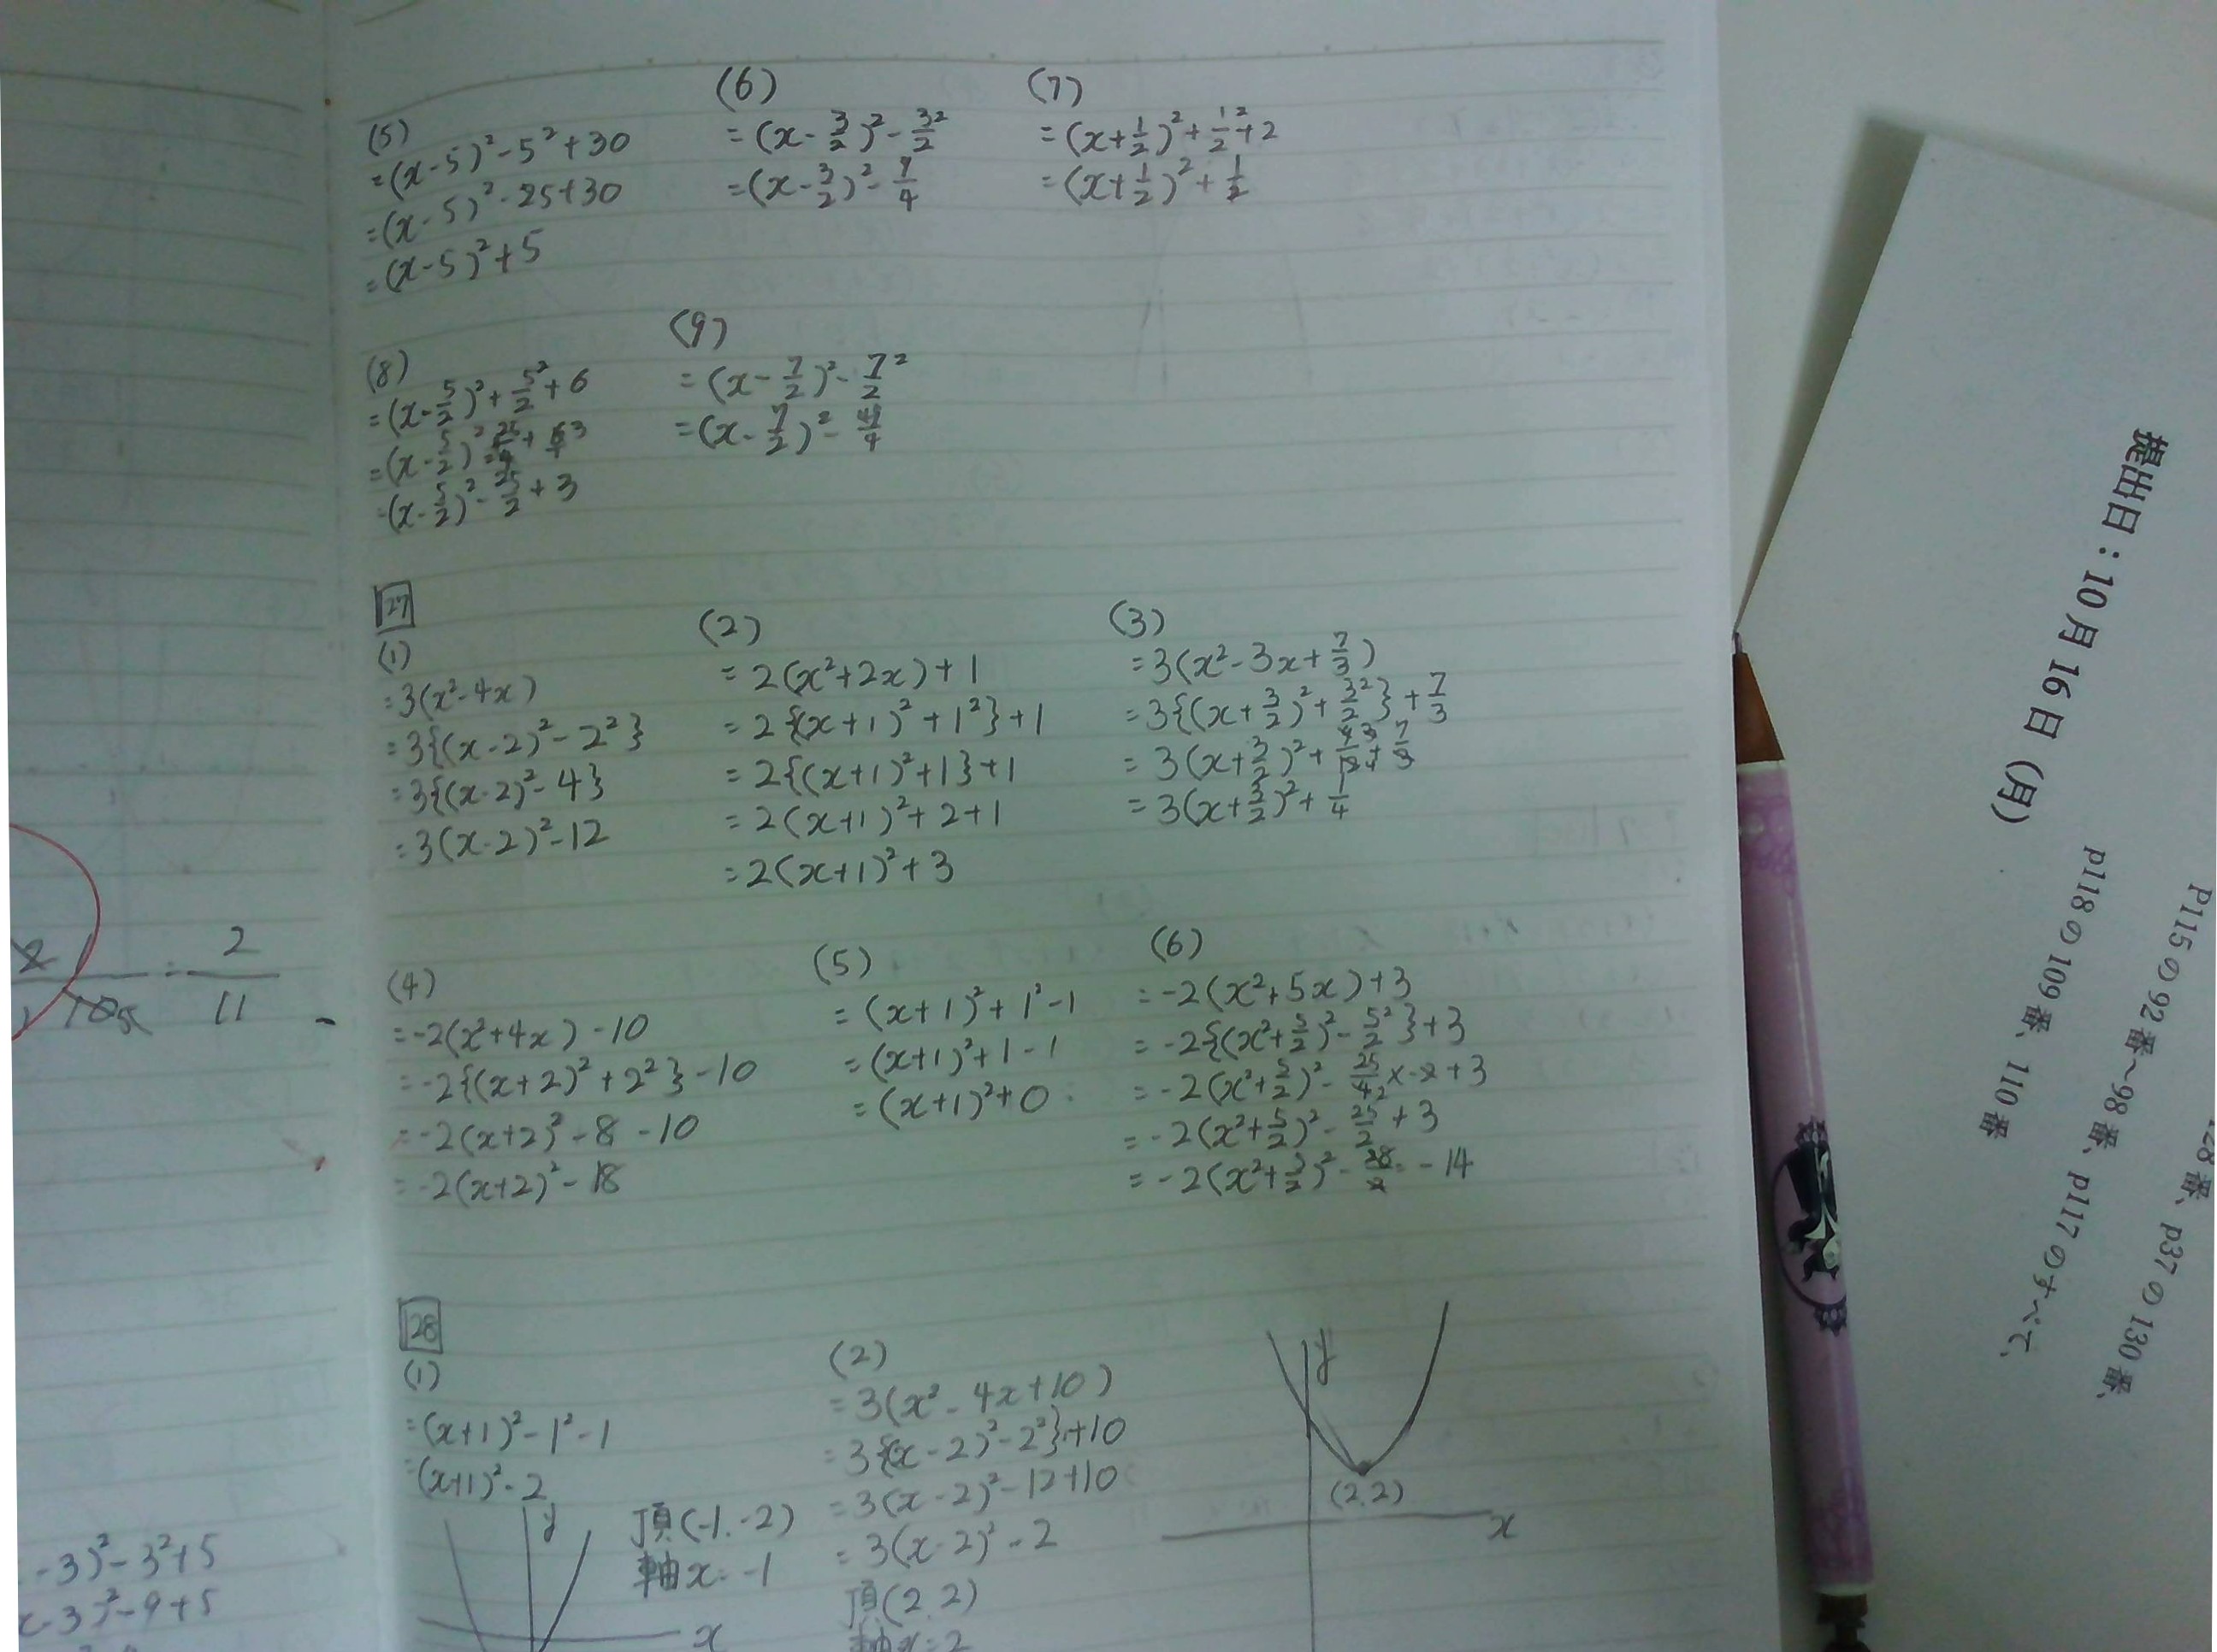 (5)
=(x-5)²-5²+30
=(x-5)²-25+30
=(x-5)²+5
(6)
=(x-3/2)²-3²/2
=(x-3/2)²-9/4
(7)
=(x+1/2)²+1²/2+2
=(x+1/2)²+1/2
(8)
=(x-5/2)²+5²/2+6
=(x-5/2)²
=(x-5/2)²-25/2+3
(9)
=(x-7/2)²-7²/2
=(x-7/2)²-49/4
27
(1)
=3(x²-4x)
=3{(x-2)²-2²}
=3{(x-2)²-4}
=3(x-2)²-12
(2)
=2(x²+2x)+1
=2{(x+1)²+1²}+1
=2{(x+1)²+1}+1
=2(x+1)²+2+1
=2(x+1)²+3
(3)
=3(x²-3x+7/3)
=3{(x+3/2)²+3²/2}+7/3
=3(x+3/2)²+
=3(x+3/2)²+1/4
(4)
=-2(x²+4x)-10
=-2{(x+2)²+2²}-10
=-2(x+2)²-8-10
=-2(x+2)²-18
(5)
=(x+1)²+1²-1
=(x+1)²+1-1
=(x+1)²+0
(6)
=-2(x²+5x)+3
=-2{(x²+5/2)²-5²/2}+3
=-2(x²+5/2)²-25/4×-2+3
=-2(x²+5/2)²-25/2+3
=-2(x²+5/2)²-28/2=-14
28
(1)
=(x+1)²-1²-1
=(x+1)²-2
y
x
頂(-1,-2)
軸x=-1
(2)
=3(x²-4x+10)
=3{(x-2)²-2²}+10
=3(x-2)²-12+10
=3(x-2)²-2
頂(2,2)
軸x=2
y
(2,2)
x
=2/11
-3)²-3²+5
x-3)²-9+5
提出日：10月16日（月）
p118の109番、110番
P115の92番～98番、p117のすべて、
128番、p37の130番、